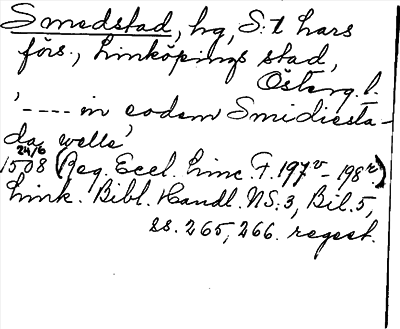 Smedstad, hg, S:t Lars
förs., Linköpings stad,
Österg. l.
'---- in eodem Smidiesta-
da wells'
24/6
1508 (Reg. Eccl. Linc. F. 197v - 198r.)
Link. Bibl. Handl. NS:3, Bil. 5,
ss. 265, 266. regest.